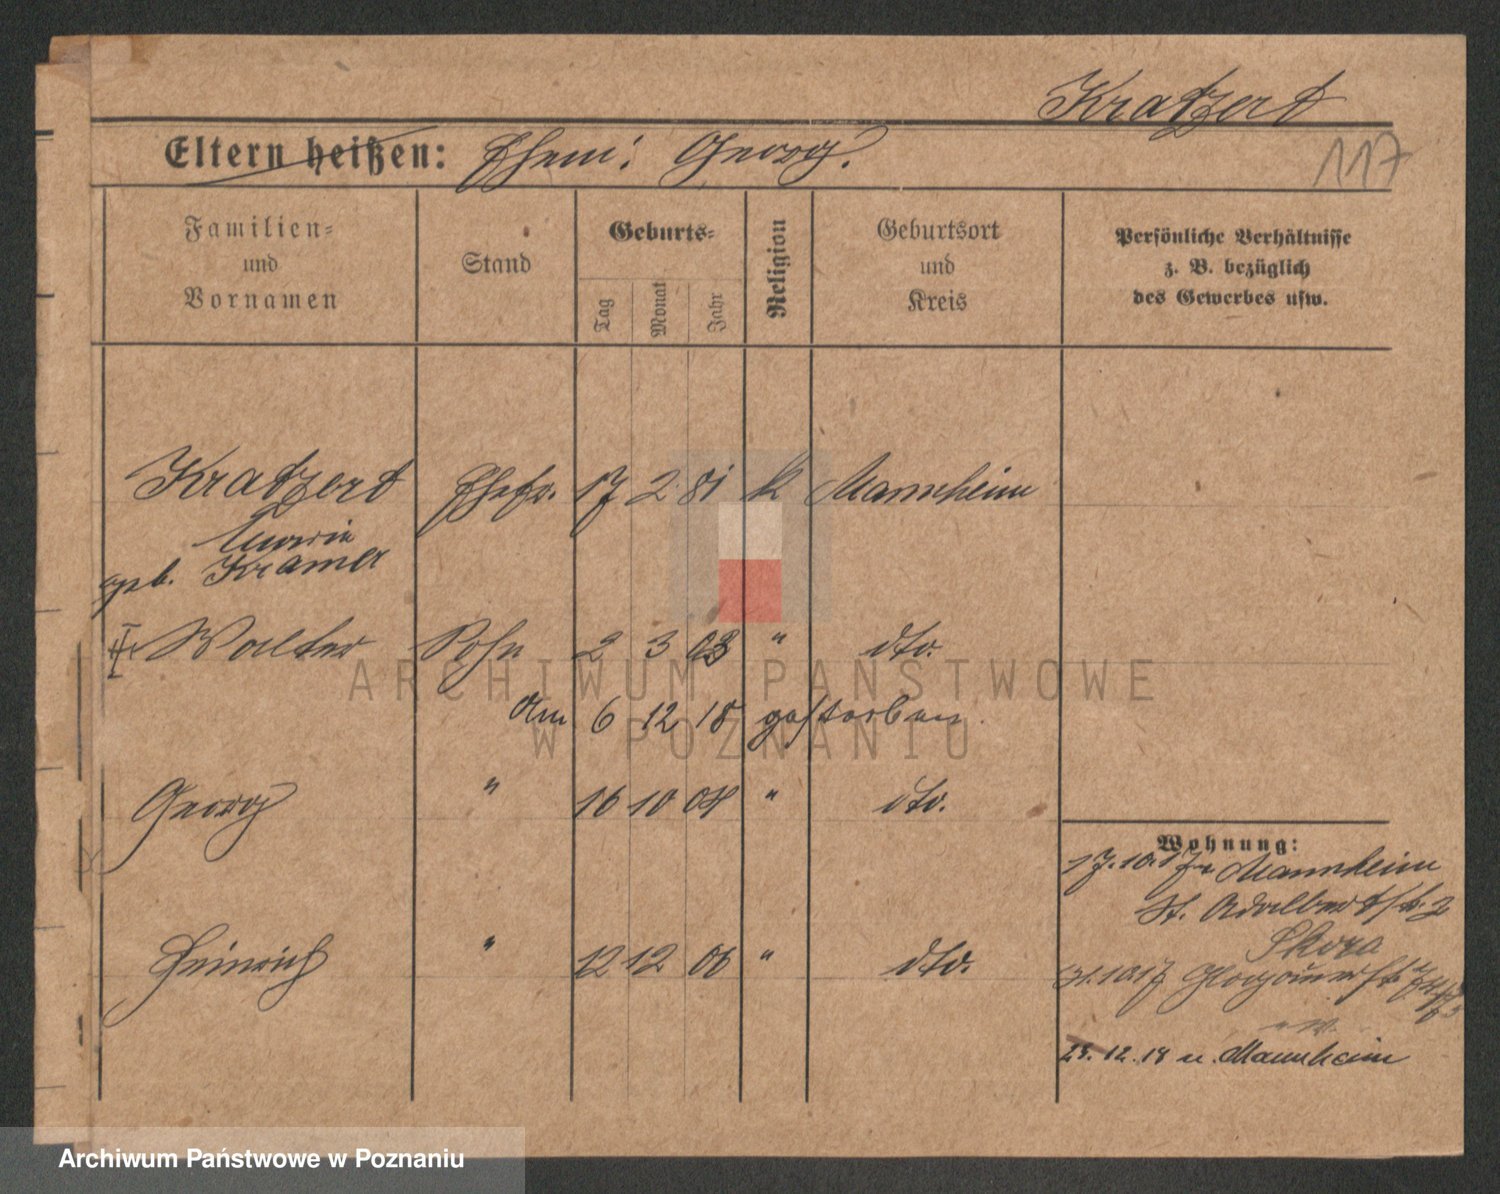 Kratzert
117
Eltern heißen: Ehem: Georg.
Familien- und Vornamen
Stand
Geburts-
Tag
Monat
Jahr
Religion
Geburtsort und Kreis
Persönliche Verhältnisse z. B. bezüglich des Gewerbes usw.
Kratzert Ehefr. 17 2 81 k Mannheim
Maria
geb. Kramer
Walter Sohn 2 3 03 " dto.
Am 6 12 18 gestorben.
Georg " 16 10 04 " dto.
Heinrich " 12 12 06 " dto.
Wohnung:
17.10.17 v Mannheim
St. Adalbertstr. 2
Skora
31.10.17 Glogauerstr.
28.12.18 n. Mannheim
ARCHIWUM PAŃSTWOWE
W POZNANIU
Archiwum Państwowe w Poznaniu